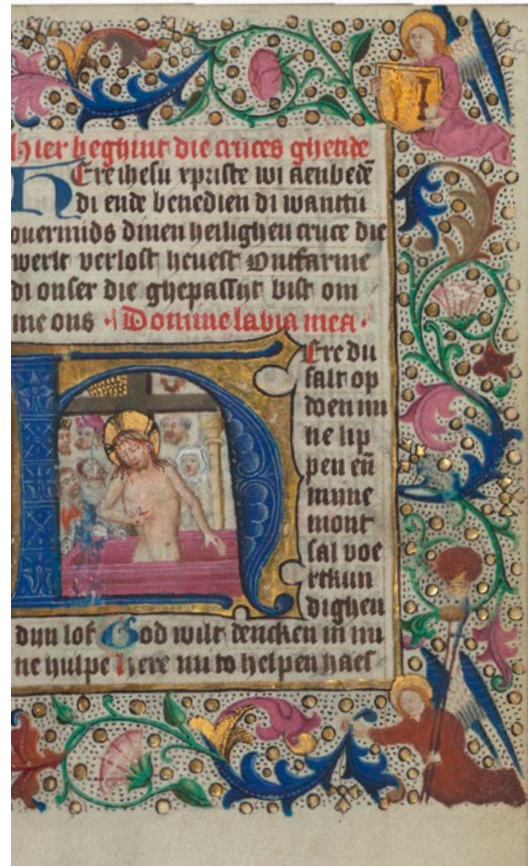 Hier beghint die cruces ghetide
Here ihesu xpriste wi aenbedē
di ende benedien di wanttu
ouermids dinen heilighen cruce die
werlt verlost heuest Ontfarme
di onser die ghepassijt bist om
me ons Domine labia mea
Here du
salt op
doen mi
ne lip
pen eñ
mine
mont
sal voe
rtkun
dighen
dijn lof God wilt dencken in mi
ne hulpe Here mi to helpen haest